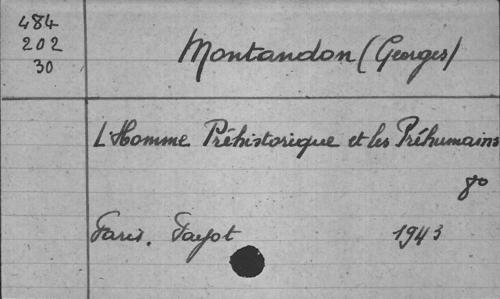 484
202
30
Montandon (Georges)
L'Homme Préhistorique et les Préhumains
8º
Paris. Payot 1943